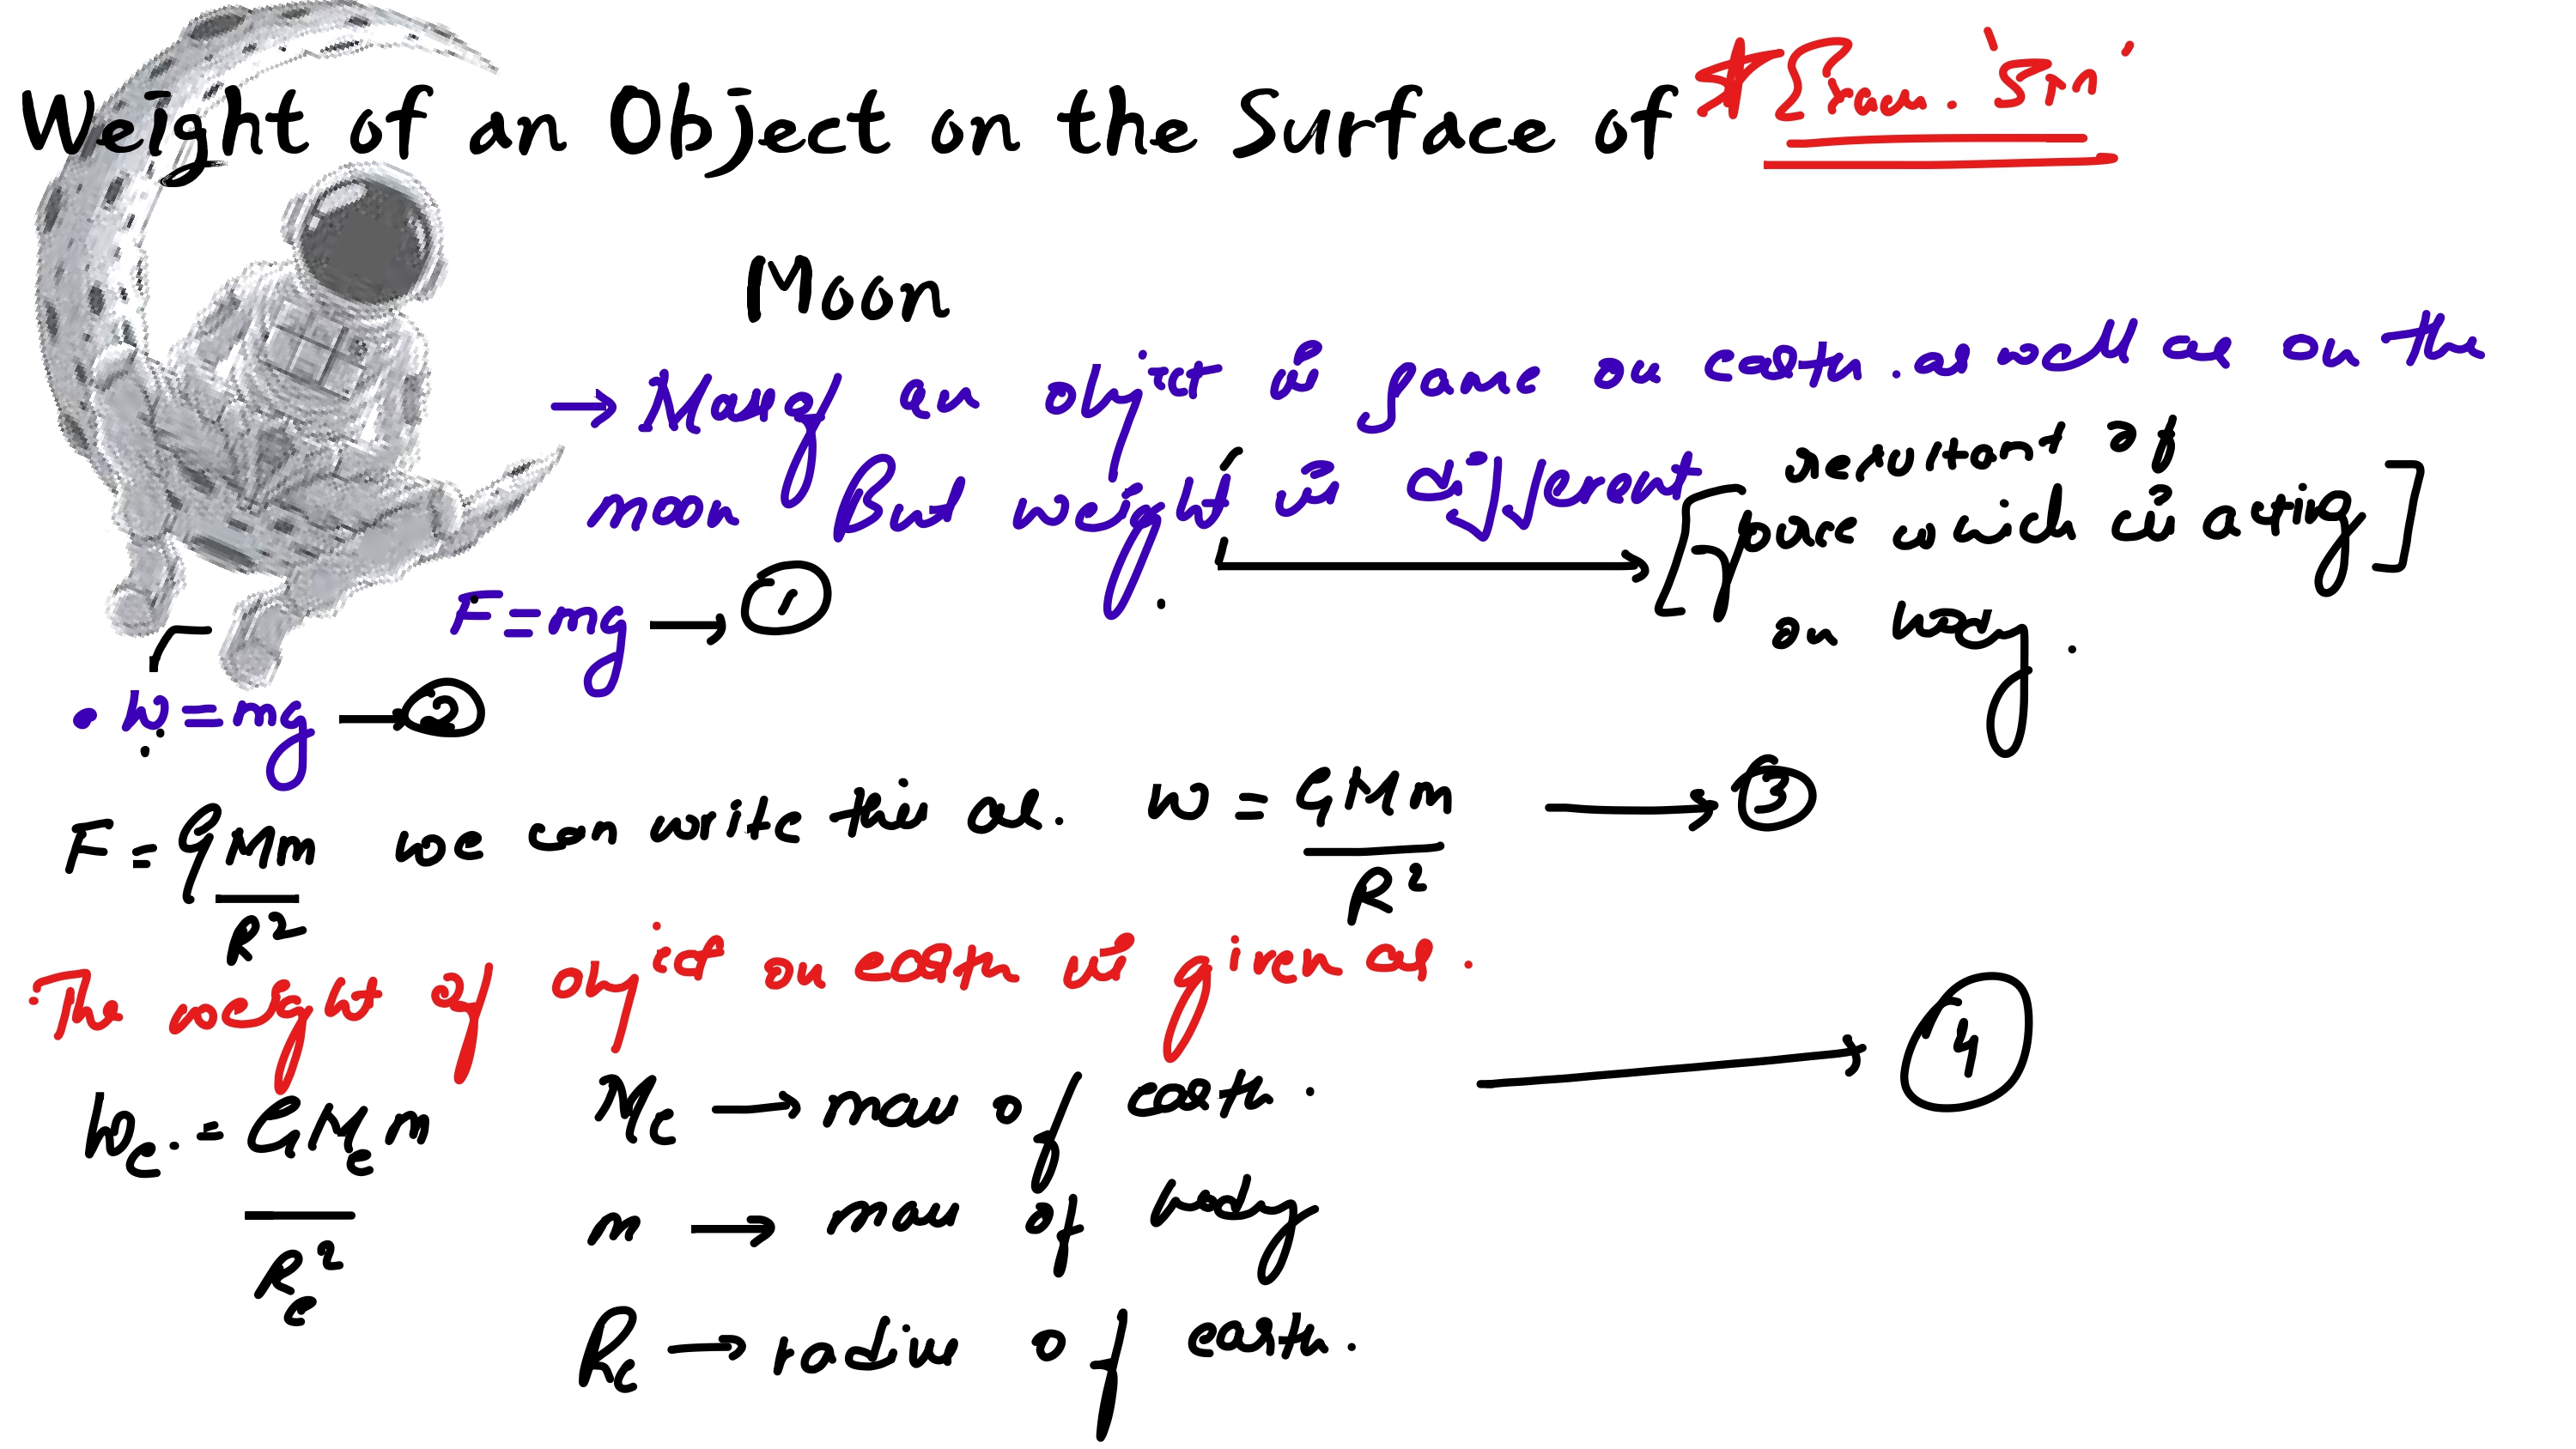 Weight of an Object on the Surface of
Moon
→ Mass of an object is same on earth . as well as on the
moon But weight is different [ resultant of
force which is acting ]
on body .
F = mg → ①
• W = mg → ②
F = GMm / R² we can write this as . W = GMm / R² → ③
The weight of object on earth is given as .
We . = GMe m / Re²
Me → mass of earth . → ④
m → mass of body
Re → radius of earth .